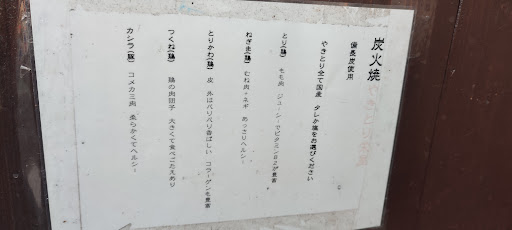 炭火焼
備長炭使用
やきとり全て国産 タレか塩をお選びください
とり(鶏) もも肉 ジューシーでビタミンB2が豊富
ねぎま(鶏) むね肉・ネギ あっさりヘルシー
とりかわ(鶏) 皮 外はパリパリ香ばしい コラーゲンも豊富
つくね(鶏) 鶏の肉団子 大きくて食べごたえあり
カシラ(豚) コメカミ肉 柔らかくてヘルシー